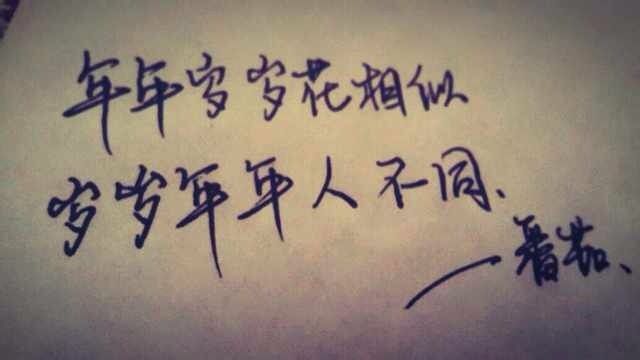 年年岁岁花相似
岁岁年年人不同、
一番茄、